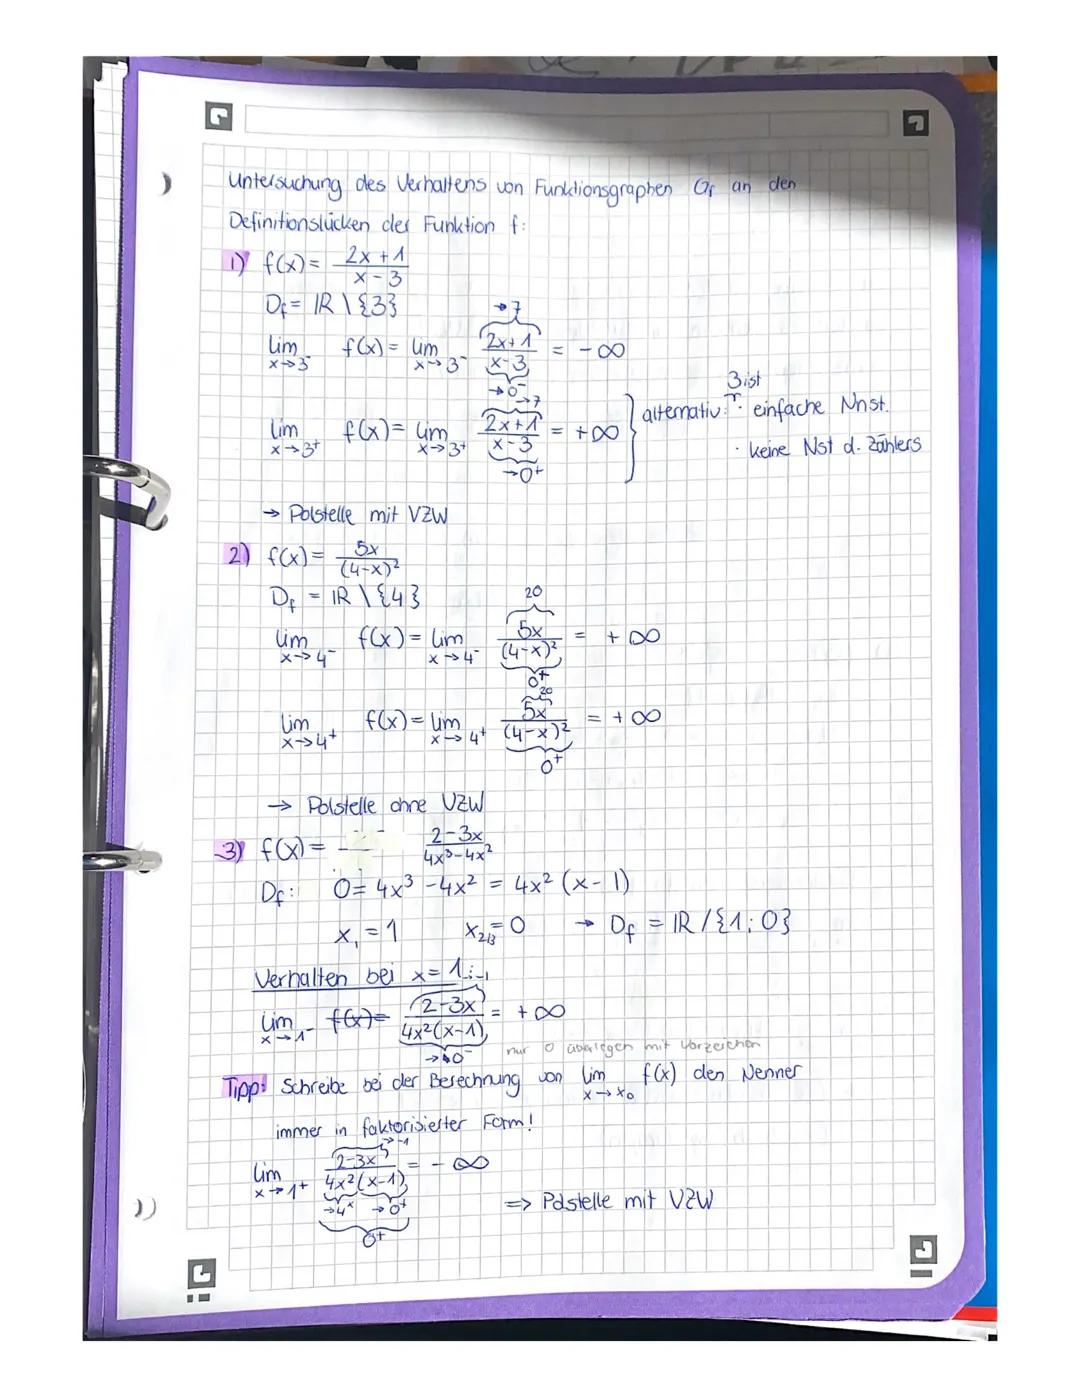 Untersuchung des Verhaltens von Funktionsgraphen Gf an den
Definitionslücken der Funktion f:
1) f(x) = (2x+1)/(x-3)
Df = ℝ \ {3}
lim x→3⁻ f(x) = lim x→3⁻ (2x+1)/(x-3) = -∞
→7
→0⁻
lim x→3⁺ f(x) = lim x→3⁺ (2x+1)/(x-3) = +∞
→7
→0⁺
3 ist
alternativ: · einfache Nnst.
· keine Nst d. Zählers
→ Polstelle mit VZW
2) f(x) = 5x/(4-x)²
Df = ℝ \ {4}
lim x→4⁻ f(x) = lim x→4⁻ 5x/(4-x)² = +∞
20
0⁺
lim x→4⁺ f(x) = lim x→4⁺ 5x/(4-x)² = +∞
20
0⁺
→ Polstelle ohne VZW
3) f(x) = (2-3x)/(4x³-4x²)
Df: 0 = 4x³ - 4x² = 4x² (x-1)
x₁ = 1 x₂/₃ = 0 → Df = ℝ / {1; 0}
Verhalten bei x = 1:
lim x→1⁻ f(x) = (2-3x)/(4x²(x-1)) = +∞
-1
→0⁻
nur 0 überlegen mit Vorzeichen
Tipp: Schreibe bei der Berechnung von lim x→x₀ f(x) den Nenner
immer in faktorisierter Form!
lim x→1⁺ (2-3x)/(4x²(x-1)) = -∞
→-1
→4 →0⁺
0⁺
⇒ Polstelle mit VZW